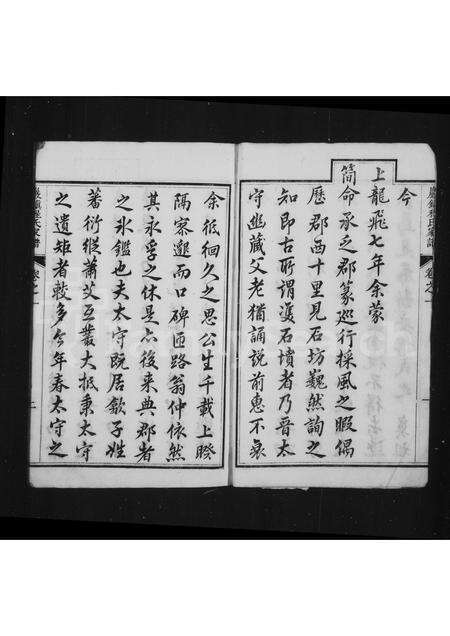 今
上龍飛七年余蒙
簡命承乏郡篆巡行採風之暇偶
歷郡西十里見石坊巍然詢之
知即古所謂漢石墳者乃晉太
守幽藏父老猶誦說前惠不衰
余低徊久之思公生千載上暌
隔寮遐而口碑匝路翁仲依然
其永孚之休是点後來典郡者
之氷鑑也夫太守既居歙子姓
蕃衍縱蕭艾互叢大抵秉太守
之遺矩者較多今年春太守之